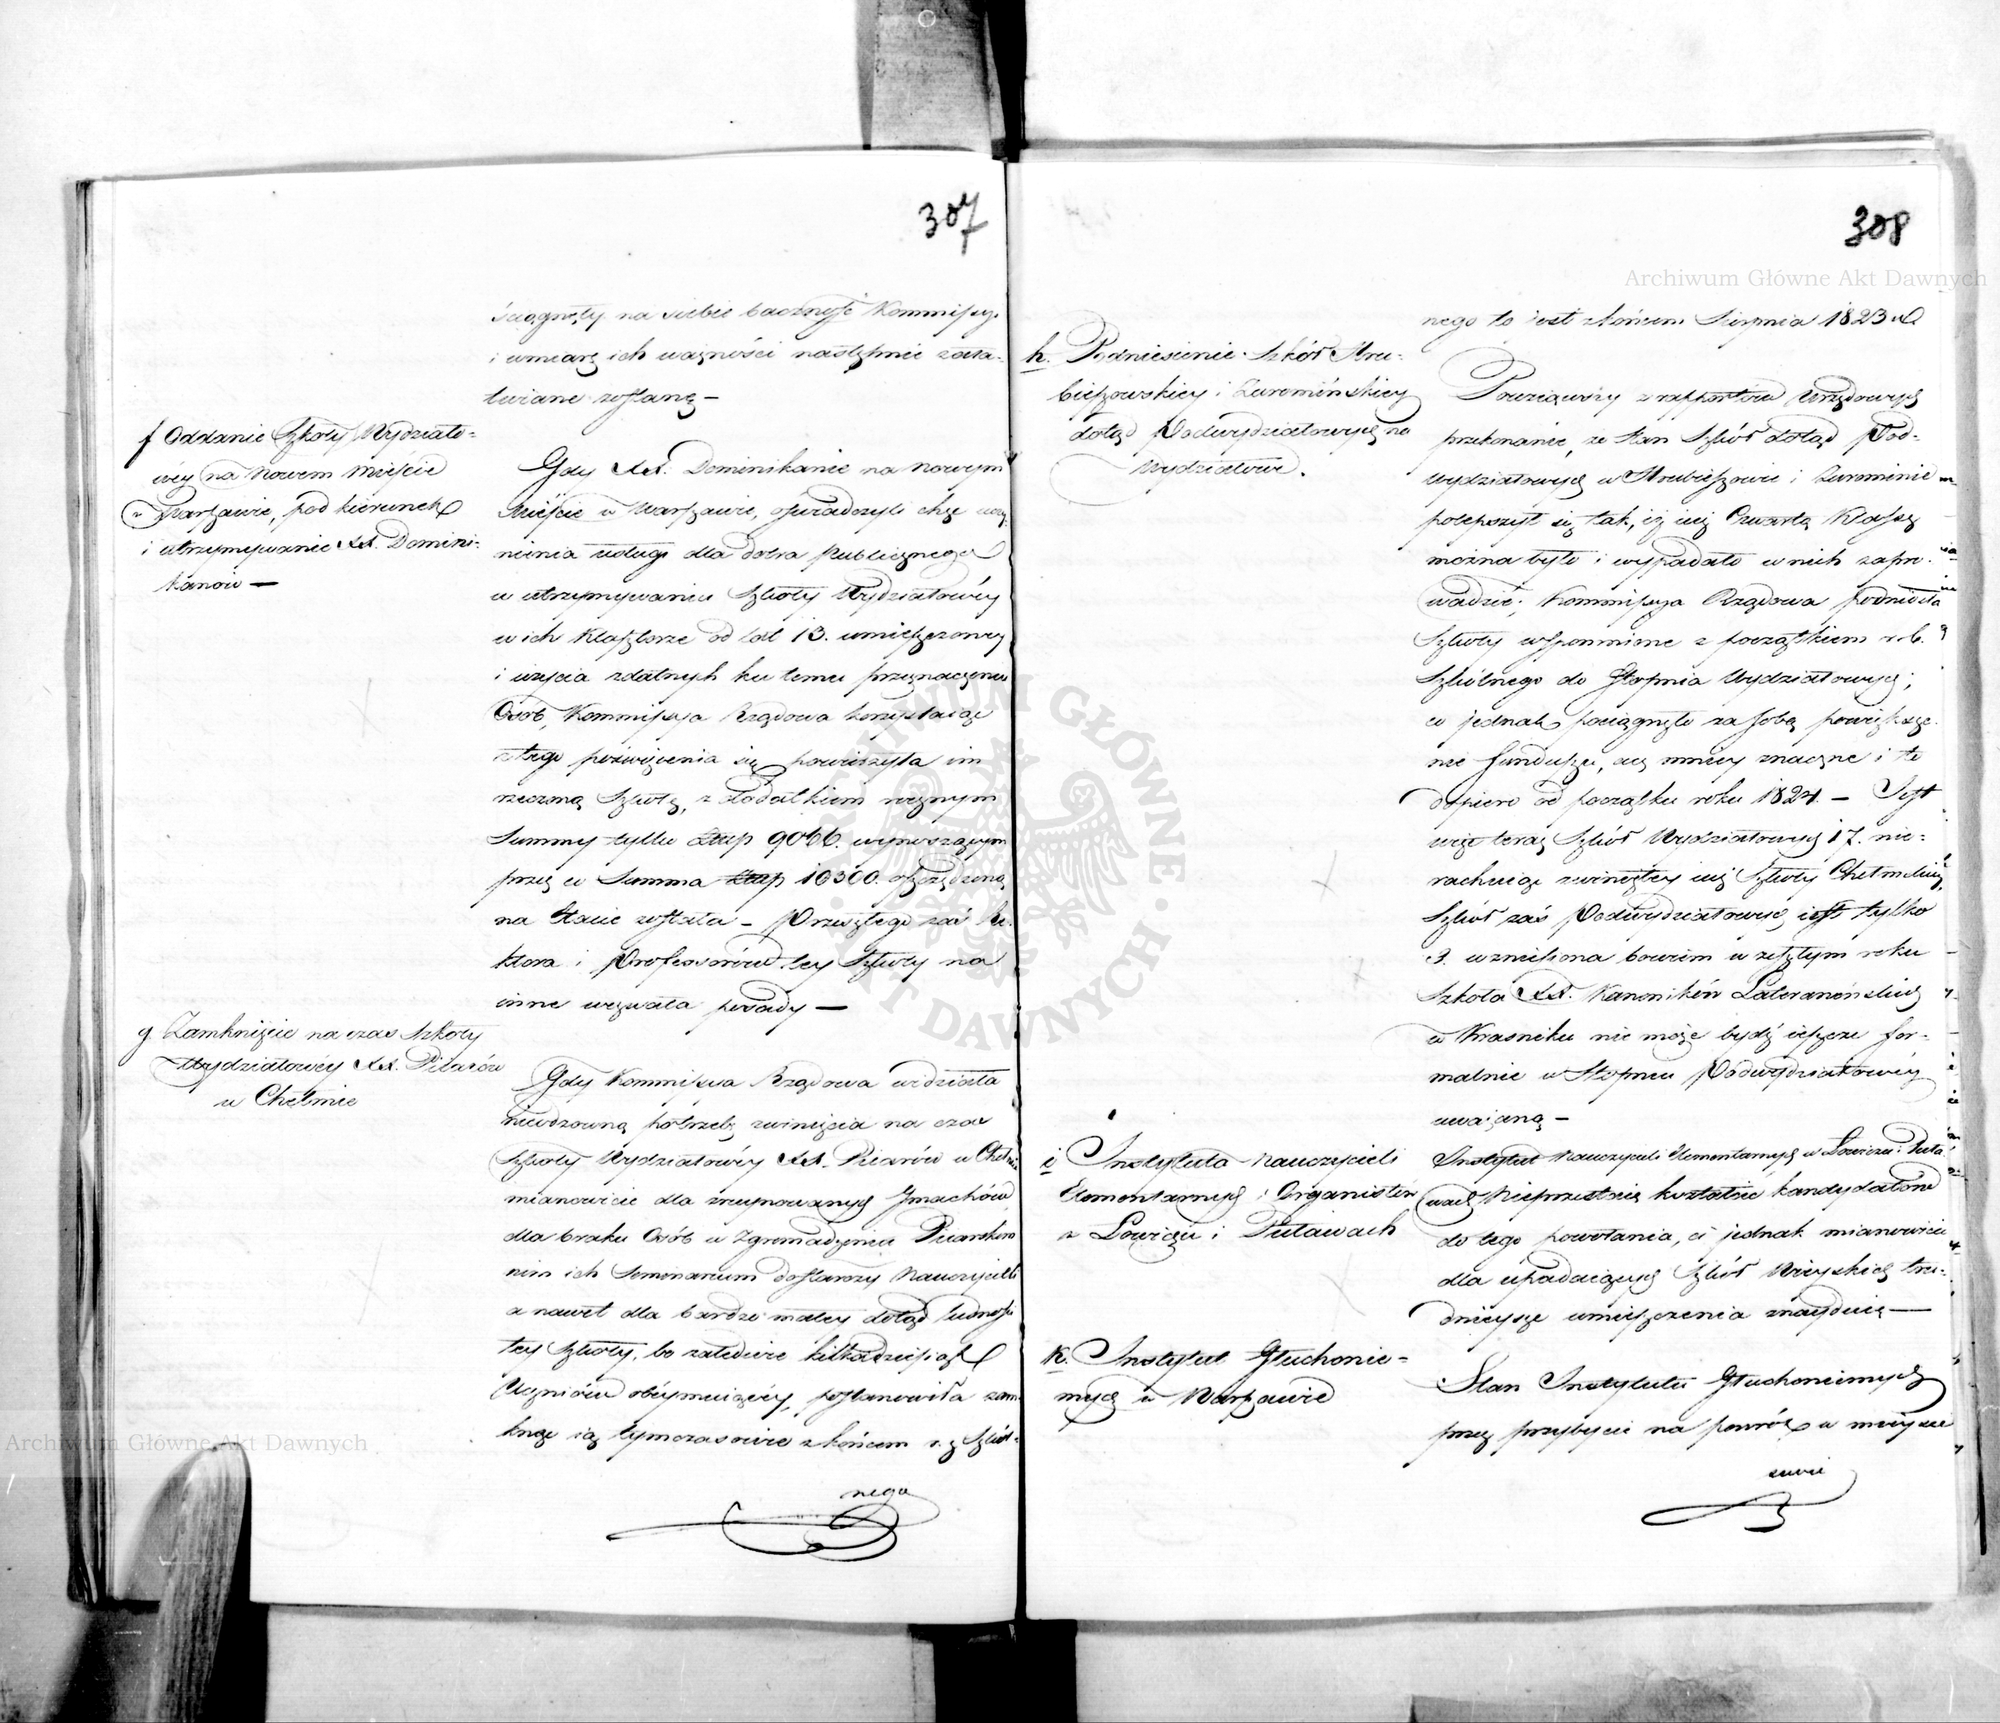 307
ściągnęły na siebie baczność Kommissyi
i w miarę ich ważności następnie zała-
twiane zostaną —
f Oddanie Szkoły Wydziało-
wéy na Nowem Mieście
w Warszawie, pod kierunek
i utrzymywanie XX. Domini-
kanów —
Gdy XX. Dominikanie na Nowym
Mieście w Warszawie, oświadczyli chęć uczy-
nienia usługi dla dobra Publicznego
w utrzymywaniu Szkoły Wydziałowéy
w ich Klasztorze od lat 13. umieszczoney
i użycia zdatnych ku temu przeznaczeniu
Osób, Kommissya Rządowa korzystaiąc
z tego poświęcenia się powierzyła im
rzeczoną Szkołę, z dodatkiem rocznym
Summy tylko Złłp 9066. wynoszącym
przez co Summa Złłp 10300. oszczędzoną
na Etacie została — Przeszłego zaś Re-
ktora i Professorów tey Szkoły na
inne wezwała posady —
g. Zamknięcie na czas Szkoły
Wydziałowéy XX. Piiarów
w Chełmie
Gdy Kommissya Rządowa widziała
nieodzowną potrzebę zwinięcia na czas
Szkoły Wydziałowéy XX. Piiarów w Chełmie
mianowicie dla zruynowanych Gmachów,
dla braku Osób w Zgromadzeniu Piiarskim
nim ich Seminarium dostarczy Nauczycieli
a nawet dla bardzo małey dotąd ludności
tey Szkoły, bo zaledwie kilkadziesiąt
Uczniów obéymuiącéy, postanowiła zam-
knąć ią tymczasowie z końcem r. z Szkól-
nego
308
nego to iest z końcem Sierpnia 1823 r.
h. Podniesienie Szkół Hru-
bieszowskiey i Żuromińskiey
dotąd Podwydziałowych na
Wydziałowe.
Powziąwszy z rapportów Urzędowych
przekonanie, że stan Szkół dotąd Pod-
wydziałowych w Hrubieszowie i Żurominie
polepszył się tak, iż iuż Czwartą Klassę
można było i wypadało w nich zapro-
wadzić; Kommissya Rządowa podniosła
Szkoły wspomnione z początkiem r. b.
Szkólnego do Stopnia Wydziałowych;
co jednak pociągnęło za sobą powiększe-
nie funduszu, acz mniey znaczne i to
dopiero od początku roku 1824. — Jest
więc teraz Szkół Wydziałowych 17. nie-
rachuiąc zwiniętey iuż Szkoły Chełmskiey,
Szkół zaś Podwydziałowych iest tylko
3. wzniesiona bowiem w zeszłym roku
Szkoła XX. Kanoników Lateraneńskich
w Krasniku nie może bydź ieszcze for-
malnie w Stopniu Podwydziałowéy
uważaną —
i Instytuta Nauczycieli
Elementarnych i Organistów
w Łowiczu i Puławach
Instytut Nauczycieli Elementarnych w Łowiczu i Puła-
wach Nieprzestaią kształcić kandydatów
do tego powołania, ci jednak mianowicie
dla upadaiących Szkół Wieyskich tru-
dnieysze umieszczenia znayduią —
k. Instytut Głuchonie-
mych w Warszawie
Stan Instytutu Głuchoniemych
przez przybycie na powrót w mieysce